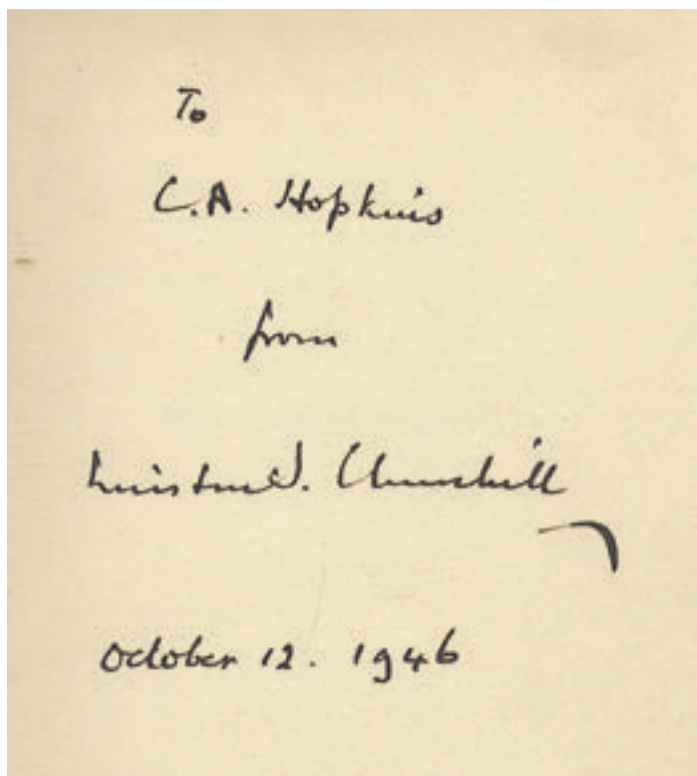 To
C.A. Hopkins
from
Winston S. Churchill
October 12. 1946